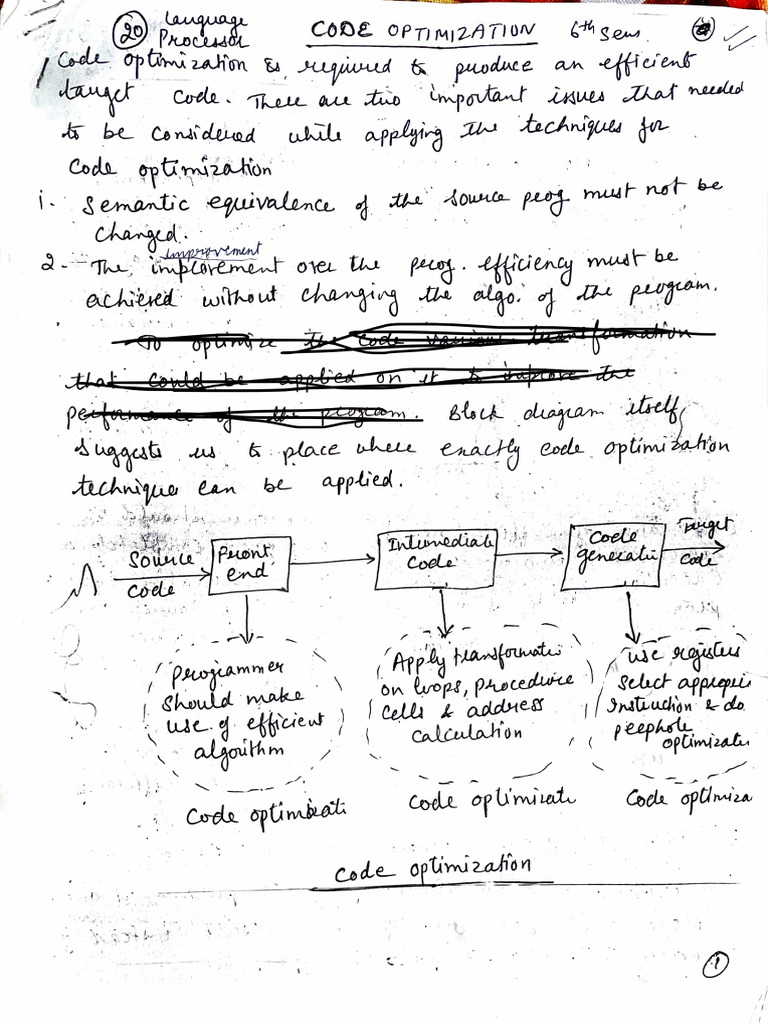 20 Language Processor CODE OPTIMIZATION 6th Sem
Code optimization is required to produce an efficient
target code. There are two important issues that needed
to be considered while applying the techniques for
Code optimization
1. Semantic equivalence of the source prog must not be
changed.
improvement
2. The implovement over the prog. efficiency must be
achieved without changing the algo. of the program.
To optimize the code various transformation
that could be applied on it to improve the
performance of the program. Block diagram itself
suggests us to place where exactly code optimization
technique can be applied.
Source Code
Front end
Intermediate Code
Code generati
Target Code
Programmer
should make
use of efficient
algorithm
Apply transformati
on loops, procedure
cells & address
calculation
use registers
Select appropri
Instruction & do
peephole
optimizati
Code optimizati
Code optimizati
Code optimiza
Code optimization
1